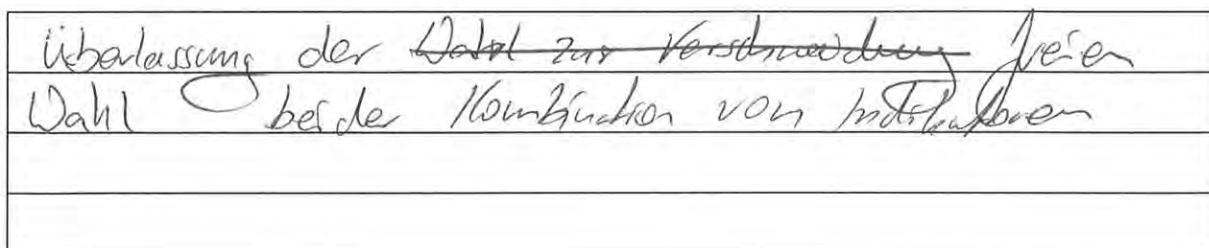 Überlassung der Wahl zur Verschwendung freien
Wahl bei der Kombination von Indikatoren